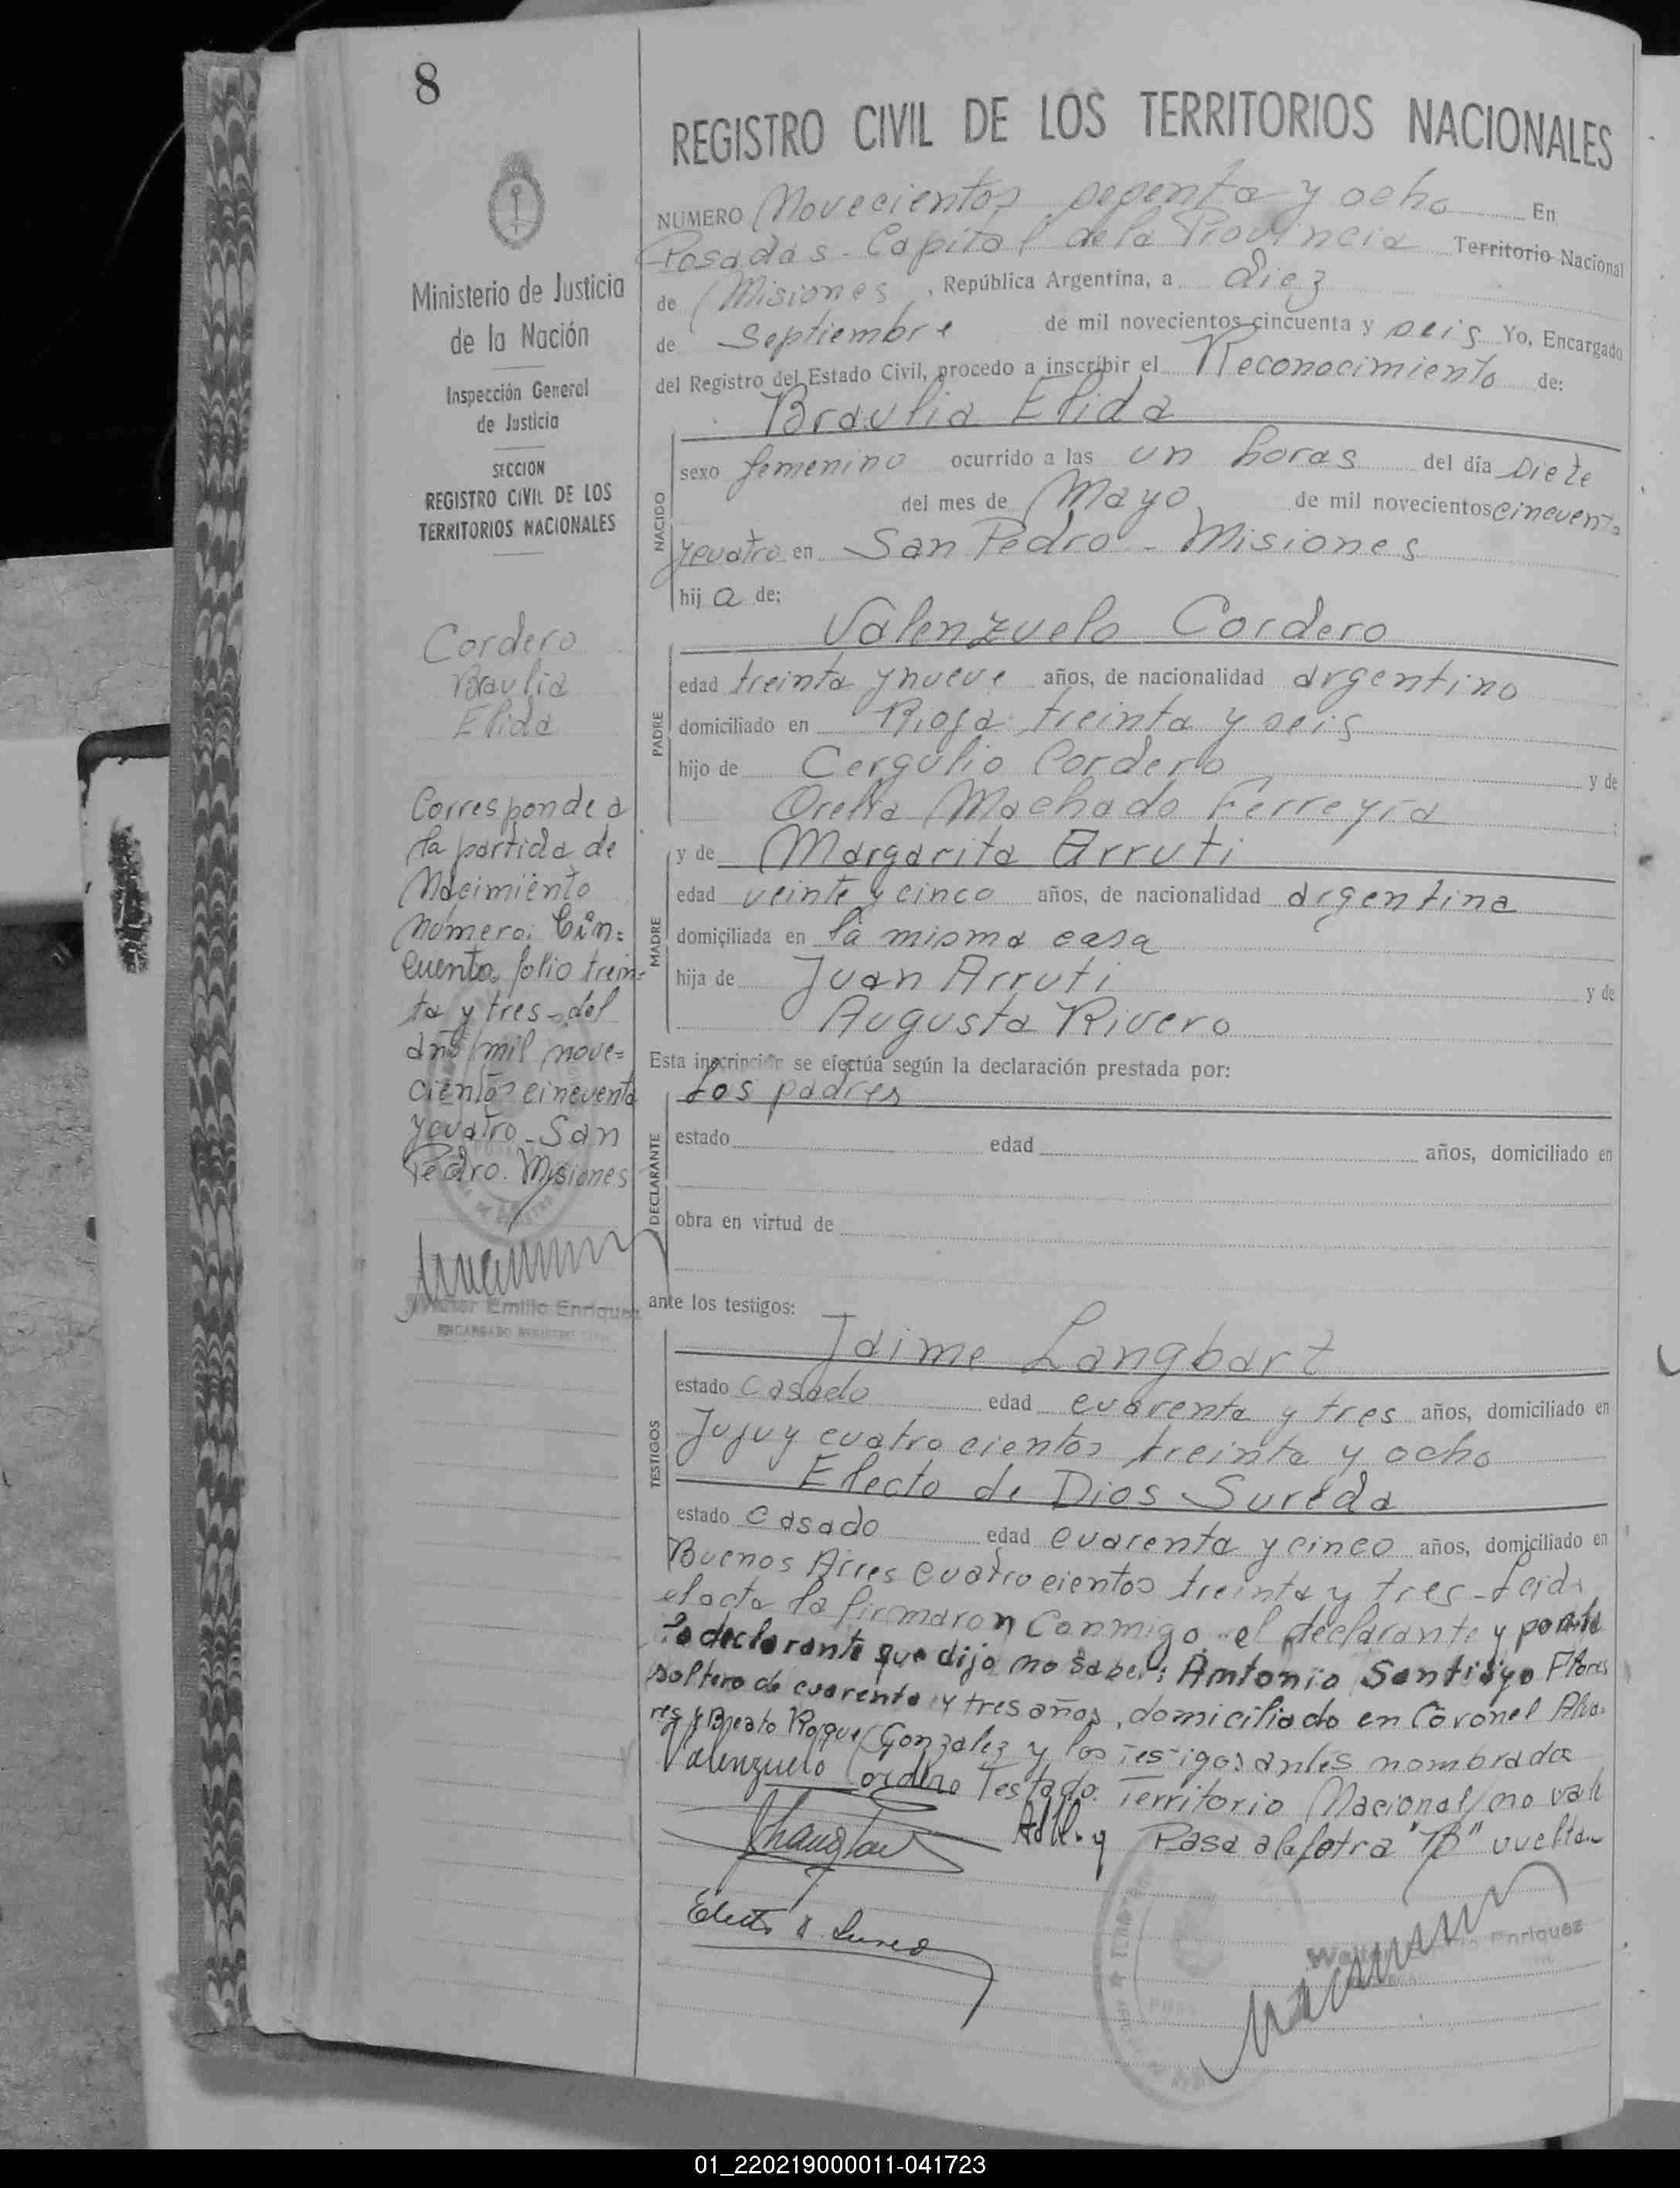 8
REGISTRO CIVIL DE LOS TERRITORIOS NACIONALES
Ministerio de Justicia
de la Nación
Inspección General
de Justicia
SECCION
REGISTRO CIVIL DE LOS
TERRITORIOS NACIONALES
Cordero
Braulia
Elida
Corresponde a
la partida de
Nacimiento
número: Cin=
cuenta folio trein=
ta y tres del
año mil nove=
cientos cincuenta
y cuatro - San
Pedro. Misiones
Emilio Enriquez
ENCARGADO REGISTRO
NUMERO Novecientos sesenta y ocho En
Posadas - Capital de la Provincia Territorio Nacional
de Misiones, República Argentina, a diez
de Septiembre de mil novecientos cincuenta y seis Yo, Encargado
del Registro del Estado Civil, procedo a inscribir el Reconocimiento de:
Braulia Elida
NACIDO
sexo femenino ocurrido a las un horas del día siete
del mes de Mayo de mil novecientos cincuenta
y cuatro en San Pedro - Misiones
hija de:
Valenzuelo Cordero
PADRE
edad treinta y nueve años, de nacionalidad argentino
domiciliado en Rioja treinta y seis
hijo de Cergulio Cordero y de
Machado Ferreyra
MADRE
y de Margarita Arruti
edad veinte y cinco años, de nacionalidad argentina
domiciliada en la misma casa
hija de Juan Arruti y de
Augusta Rivero
Esta inscripción se efectúa según la declaración prestada por:
Los padres
DECLARANTE
estado edad años, domiciliado en
obra en virtud de
ante los testigos:
TESTIGOS
Jaime Langbart
estado Casado edad cuarenta y tres años, domiciliado en
Jujuy cuatrocientos treinta y ocho
Electo de Dios Sureda
estado casado edad cuarenta y cinco años, domiciliado en
Buenos Aires cuatrocientos treinta y tres - Leida
el acta la firmaron conmigo el declarante y por la
la declarante que dijo no saber: Antonio Santiago Flores
soltero de cuarenta y tres años, domiciliado en Coronel Alva-
res y Beato Roque Gonzalez y los testigos antes nombrados
Valenzuelo Cordero Testado: Territorio Nacional/no vale
Pasa a la letra "B" vuelta
Electo d. Sureda
Enriquez
01_220219000011-041723